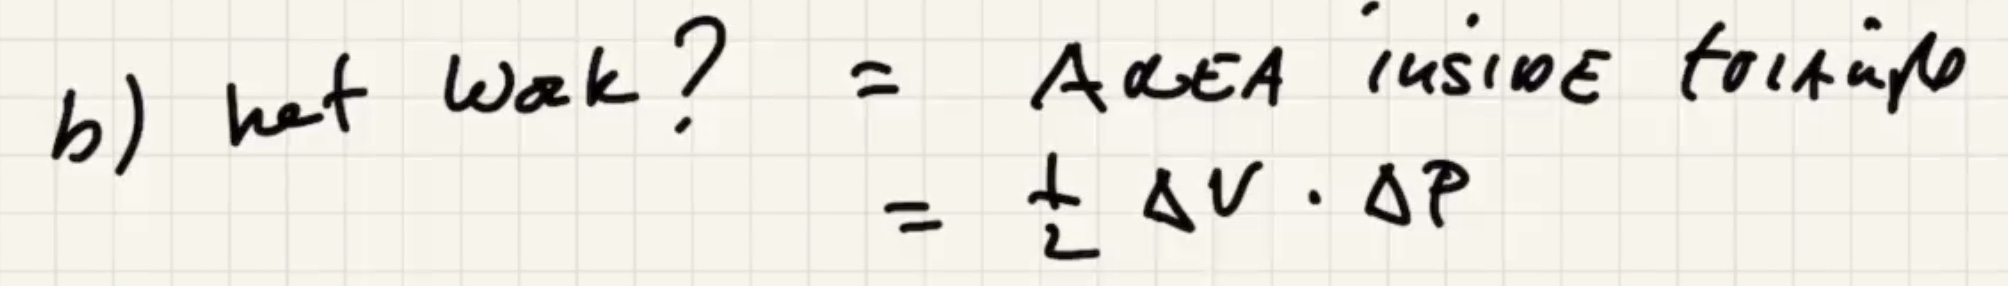 b) net work? = AREA inside triangle
= 1/2 ΔV · ΔP